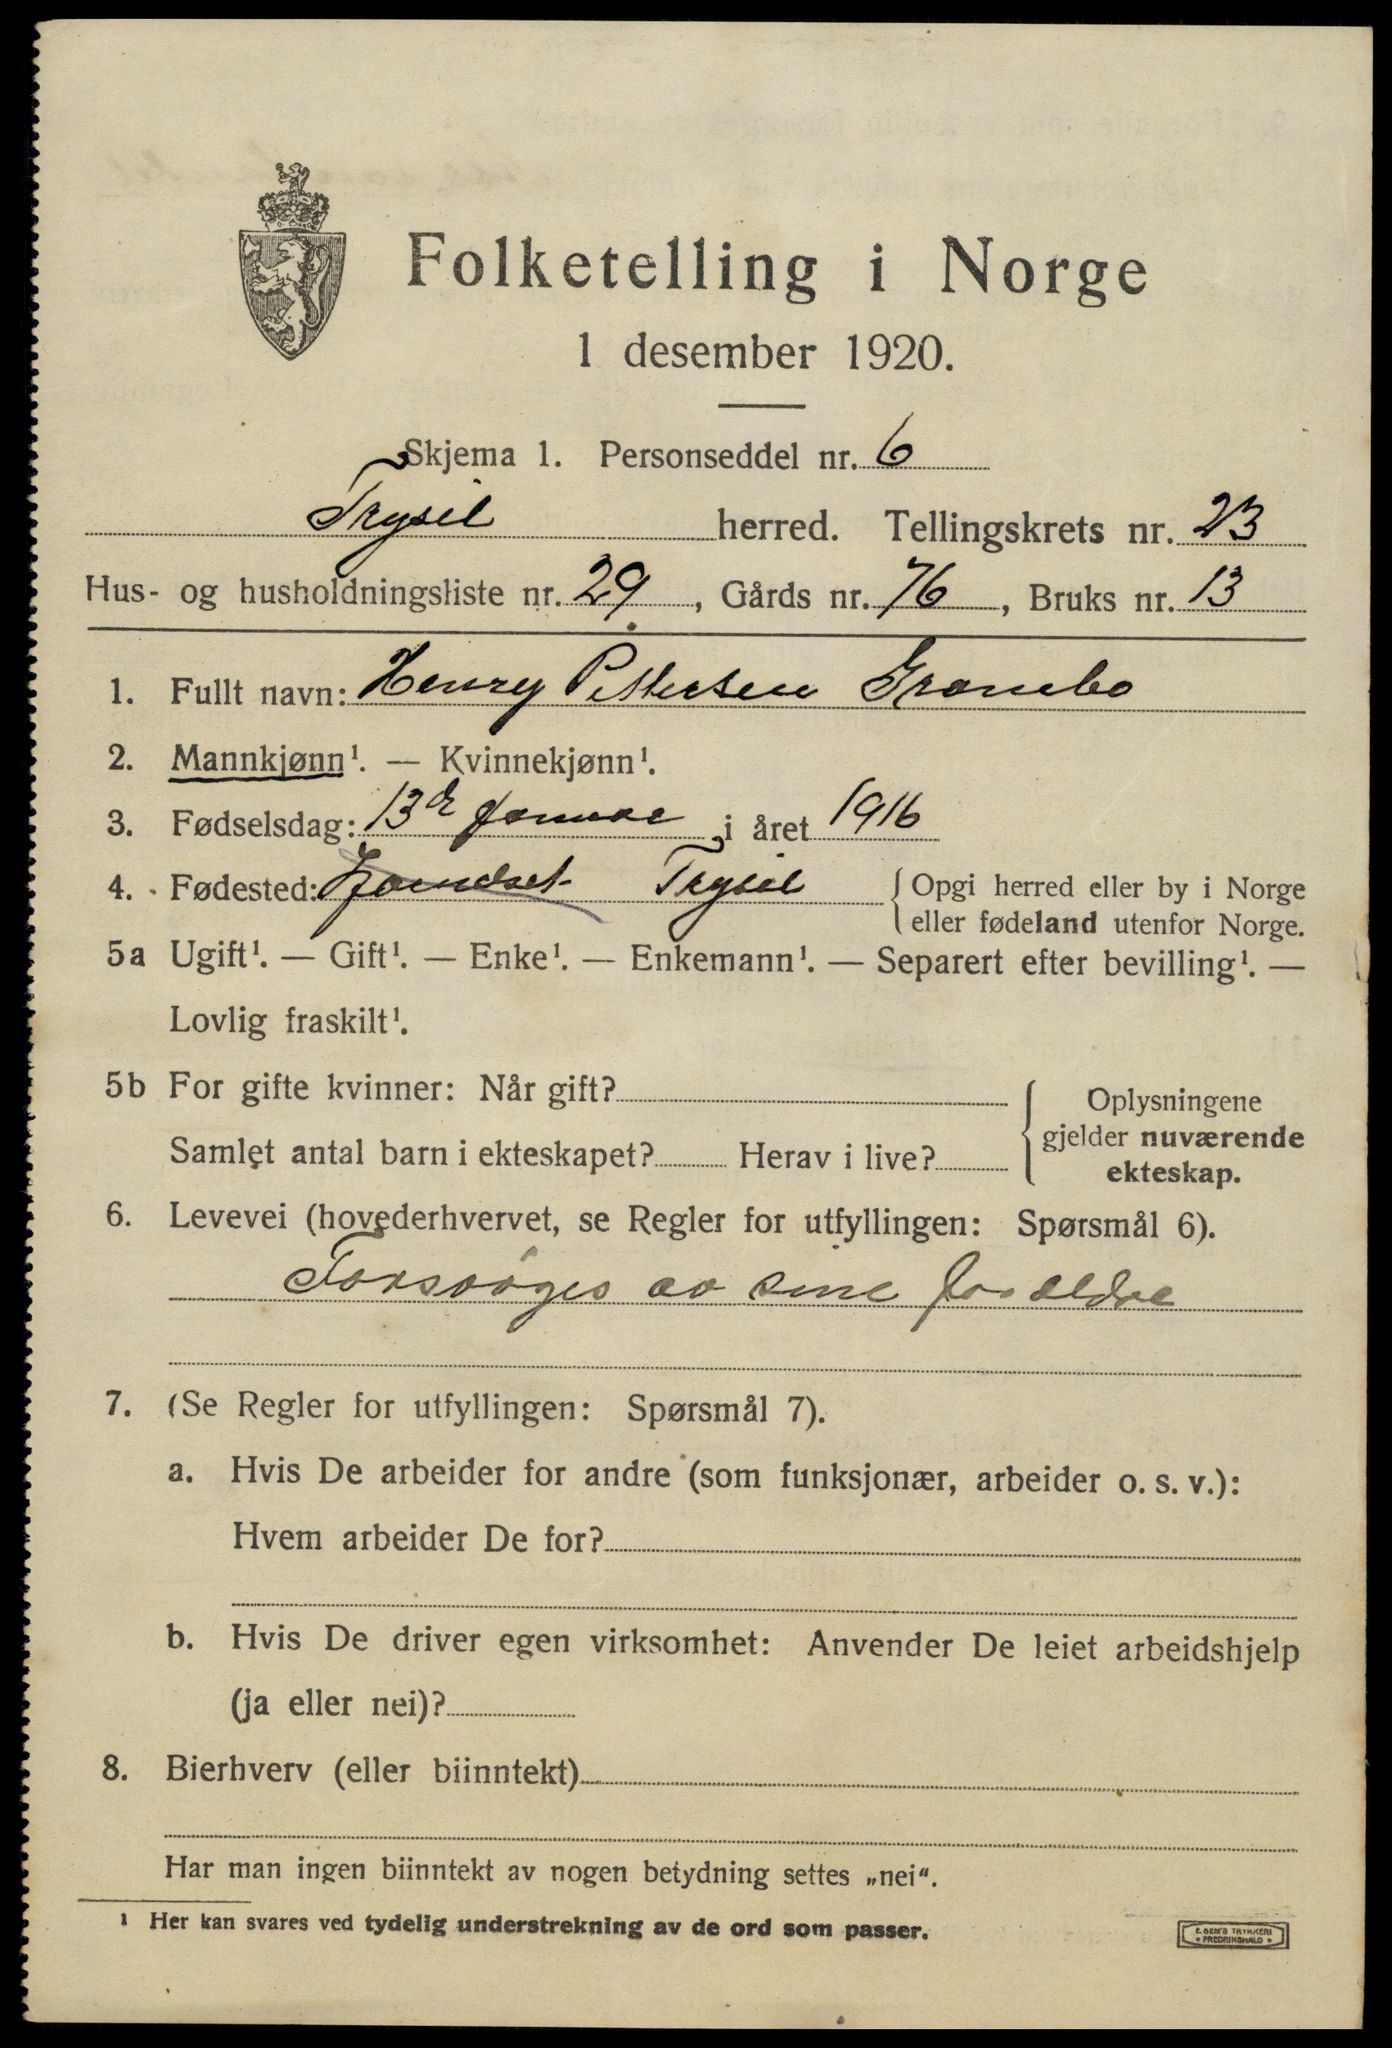 Folketelling i Norge
1 desember 1920.
Skjema 1. Personseddel nr. 6
Trysil herred. Tellingskrets nr. 23
Hus- og husholdningsliste nr. 29, Gårds nr. 76, Bruks nr. 13
1. Fullt navn: Henry Pettersen Grambo
2. Mannkjønn¹. — Kvinnekjønn¹.
3. Fødselsdag: 13de Januar i året 1916
4. Fødested: Trysil {Opgi herred eller by i Norge
eller fødeland utenfor Norge.
5a Ugift¹. — Gift¹. — Enke¹. — Enkemann¹. — Separert efter bevilling¹. —
Lovlig fraskilt¹.
5b For gifte kvinner: Når gift?
Samlet antal barn i ekteskapet? Herav i live?
Oplysningene
gjelder nuværende
ekteskap.
6. Levevei (hovederhvervet, se Regler for utfyllingen: Spørsmål 6).
Forsørges av sine forældre
7. (Se Regler for utfyllingen: Spørsmål 7).
a. Hvis De arbeider for andre (som funksjonær, arbeider o. s. v.):
Hvem arbeider De for?
b. Hvis De driver egen virksomhet: Anvender De leiet arbeidshjelp
(ja eller nei)?
8. Bierhverv (eller biinntekt)
Har man ingen biinntekt av nogen betydning settes „nei“.
¹ Her kan svares ved tydelig understrekning av de ord som passer.
E. SEM'S TRYKKERI
FREDRIKSHALD